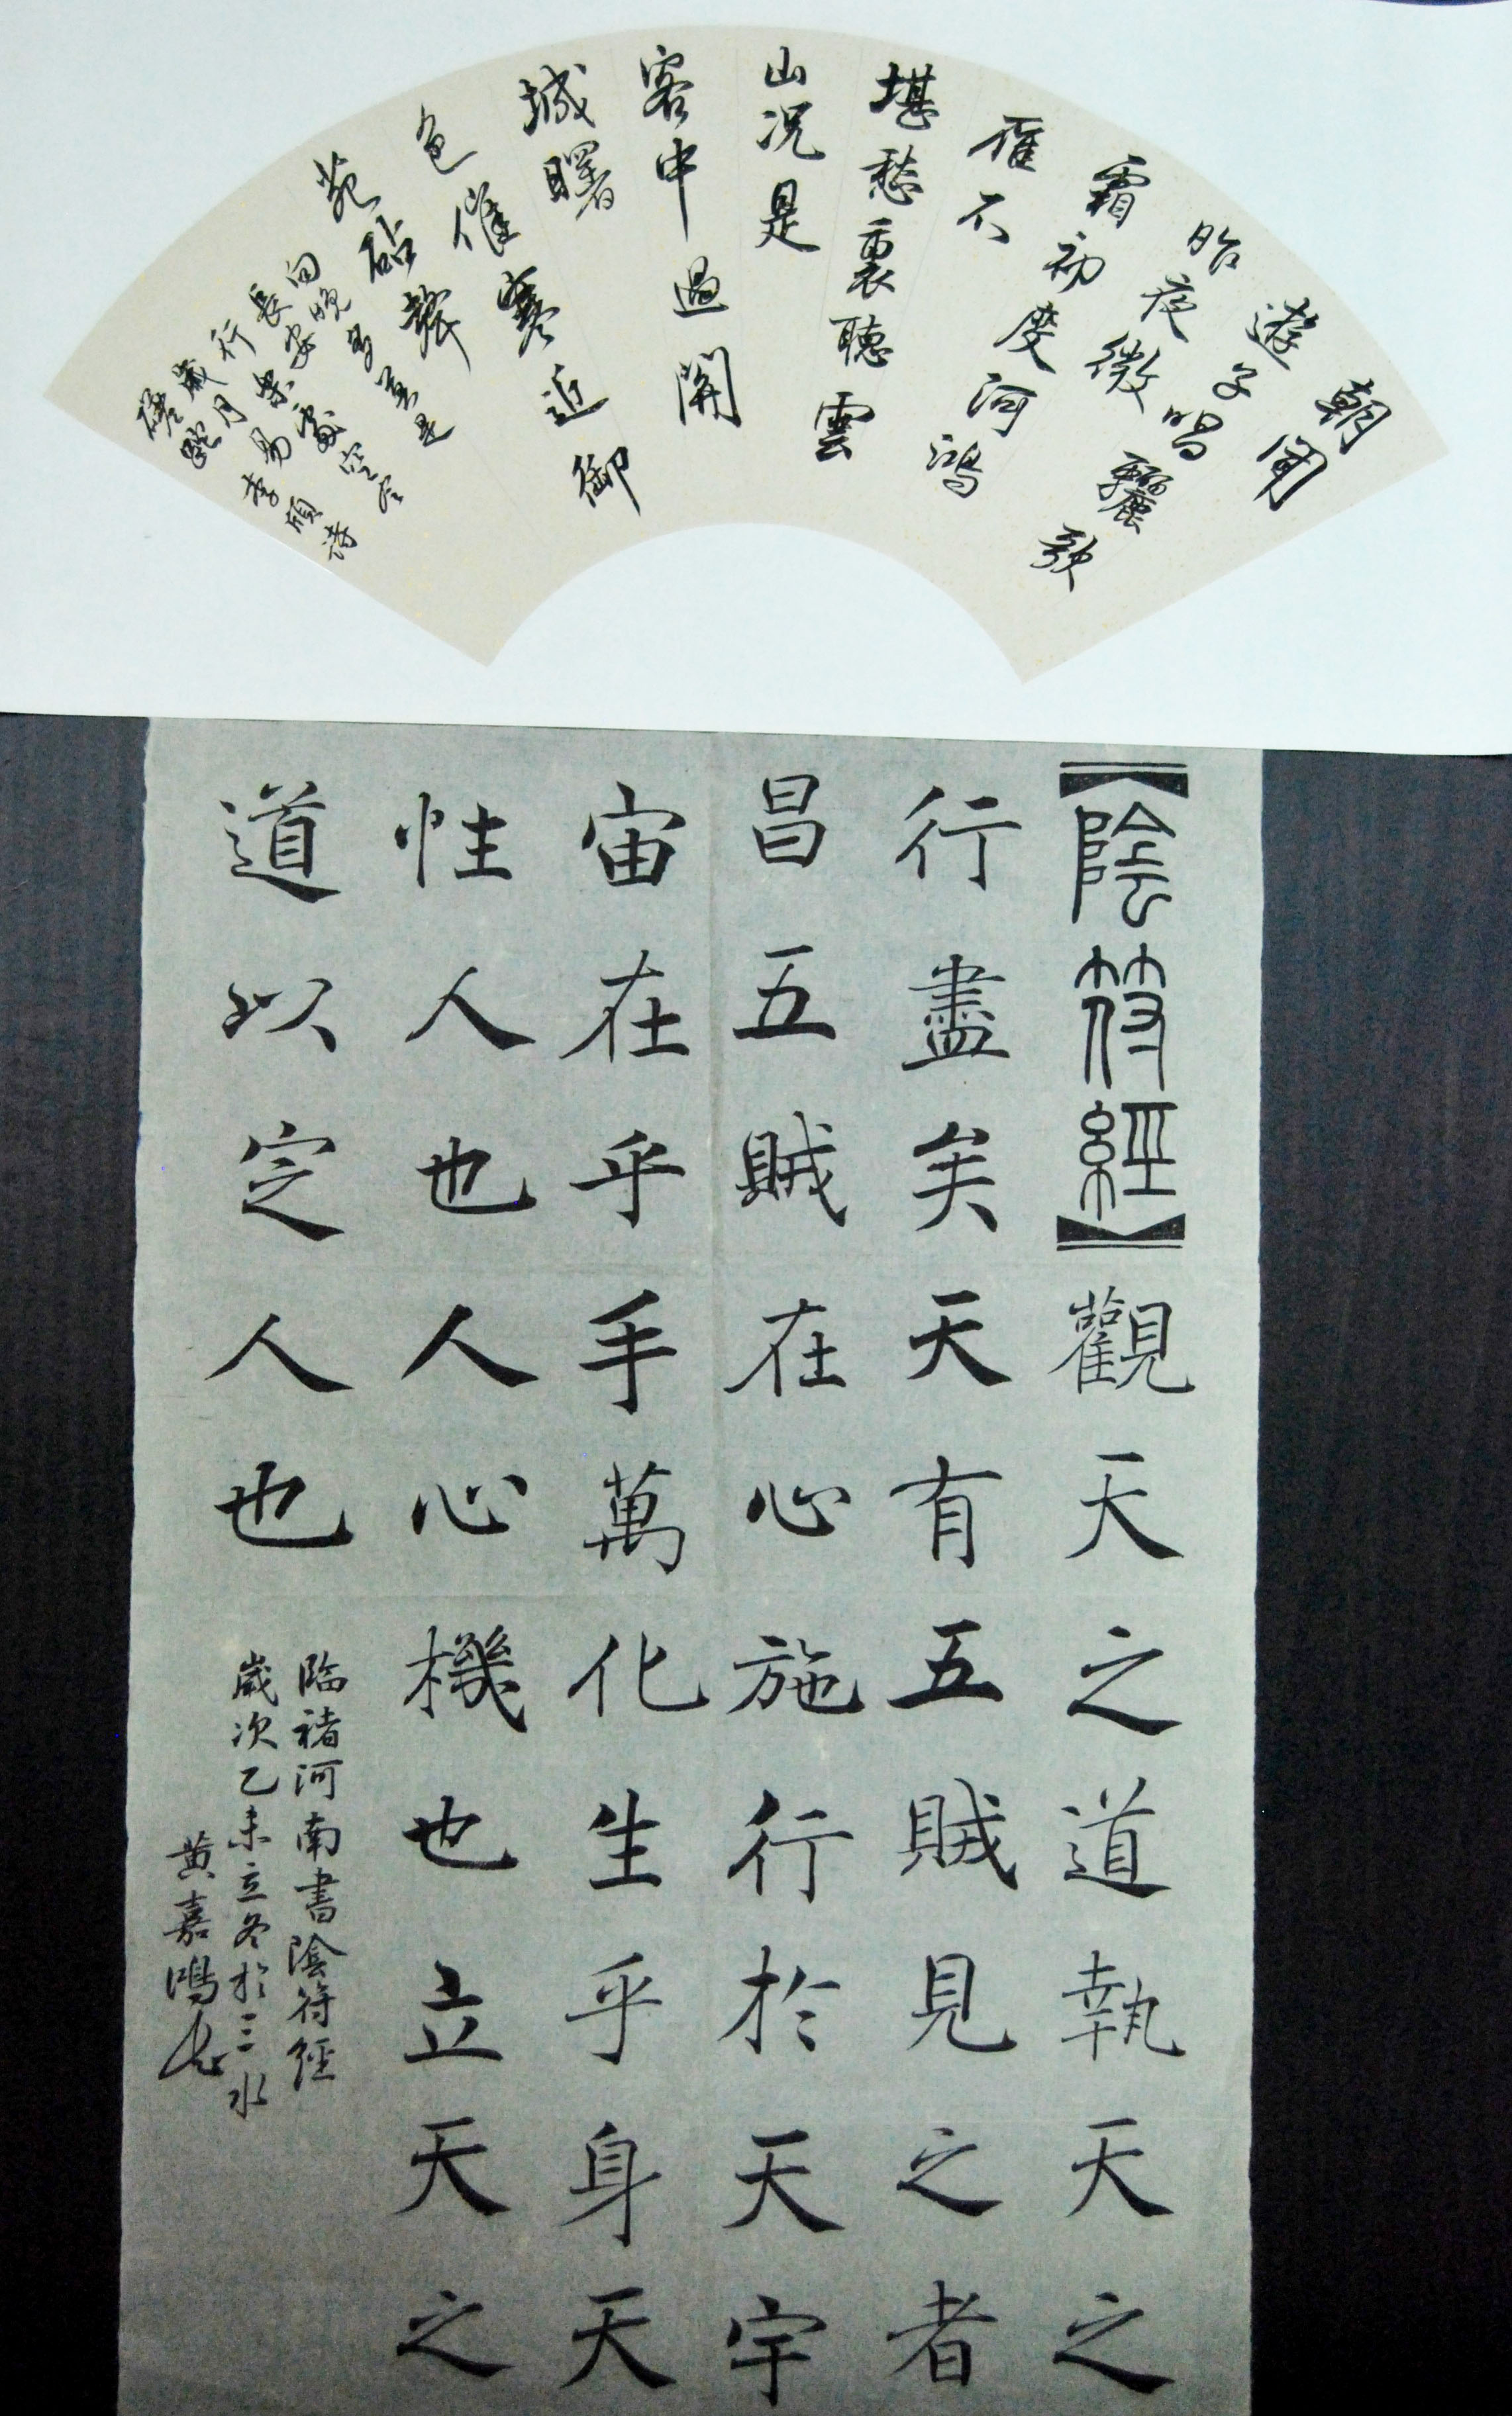 朝聞
遊子唱驪歌
昨夜微
霜初度河鴻
雁不
堪愁裏聽雲
山況是
客中過開
城曙
色催寒近御
苑砧聲
向晚多莫是
長安行樂處空令
歲月易李頎詩
蹉跎
【陰符經】觀天之道執天之
行盡矣天有五賊見之者
昌五賊在心施行於天宇
宙在乎手萬化生乎身天
性人也人心機也立天之
道以定人也
臨褚河南書陰符經
歲次乙未立冬於三水
黄嘉鴻